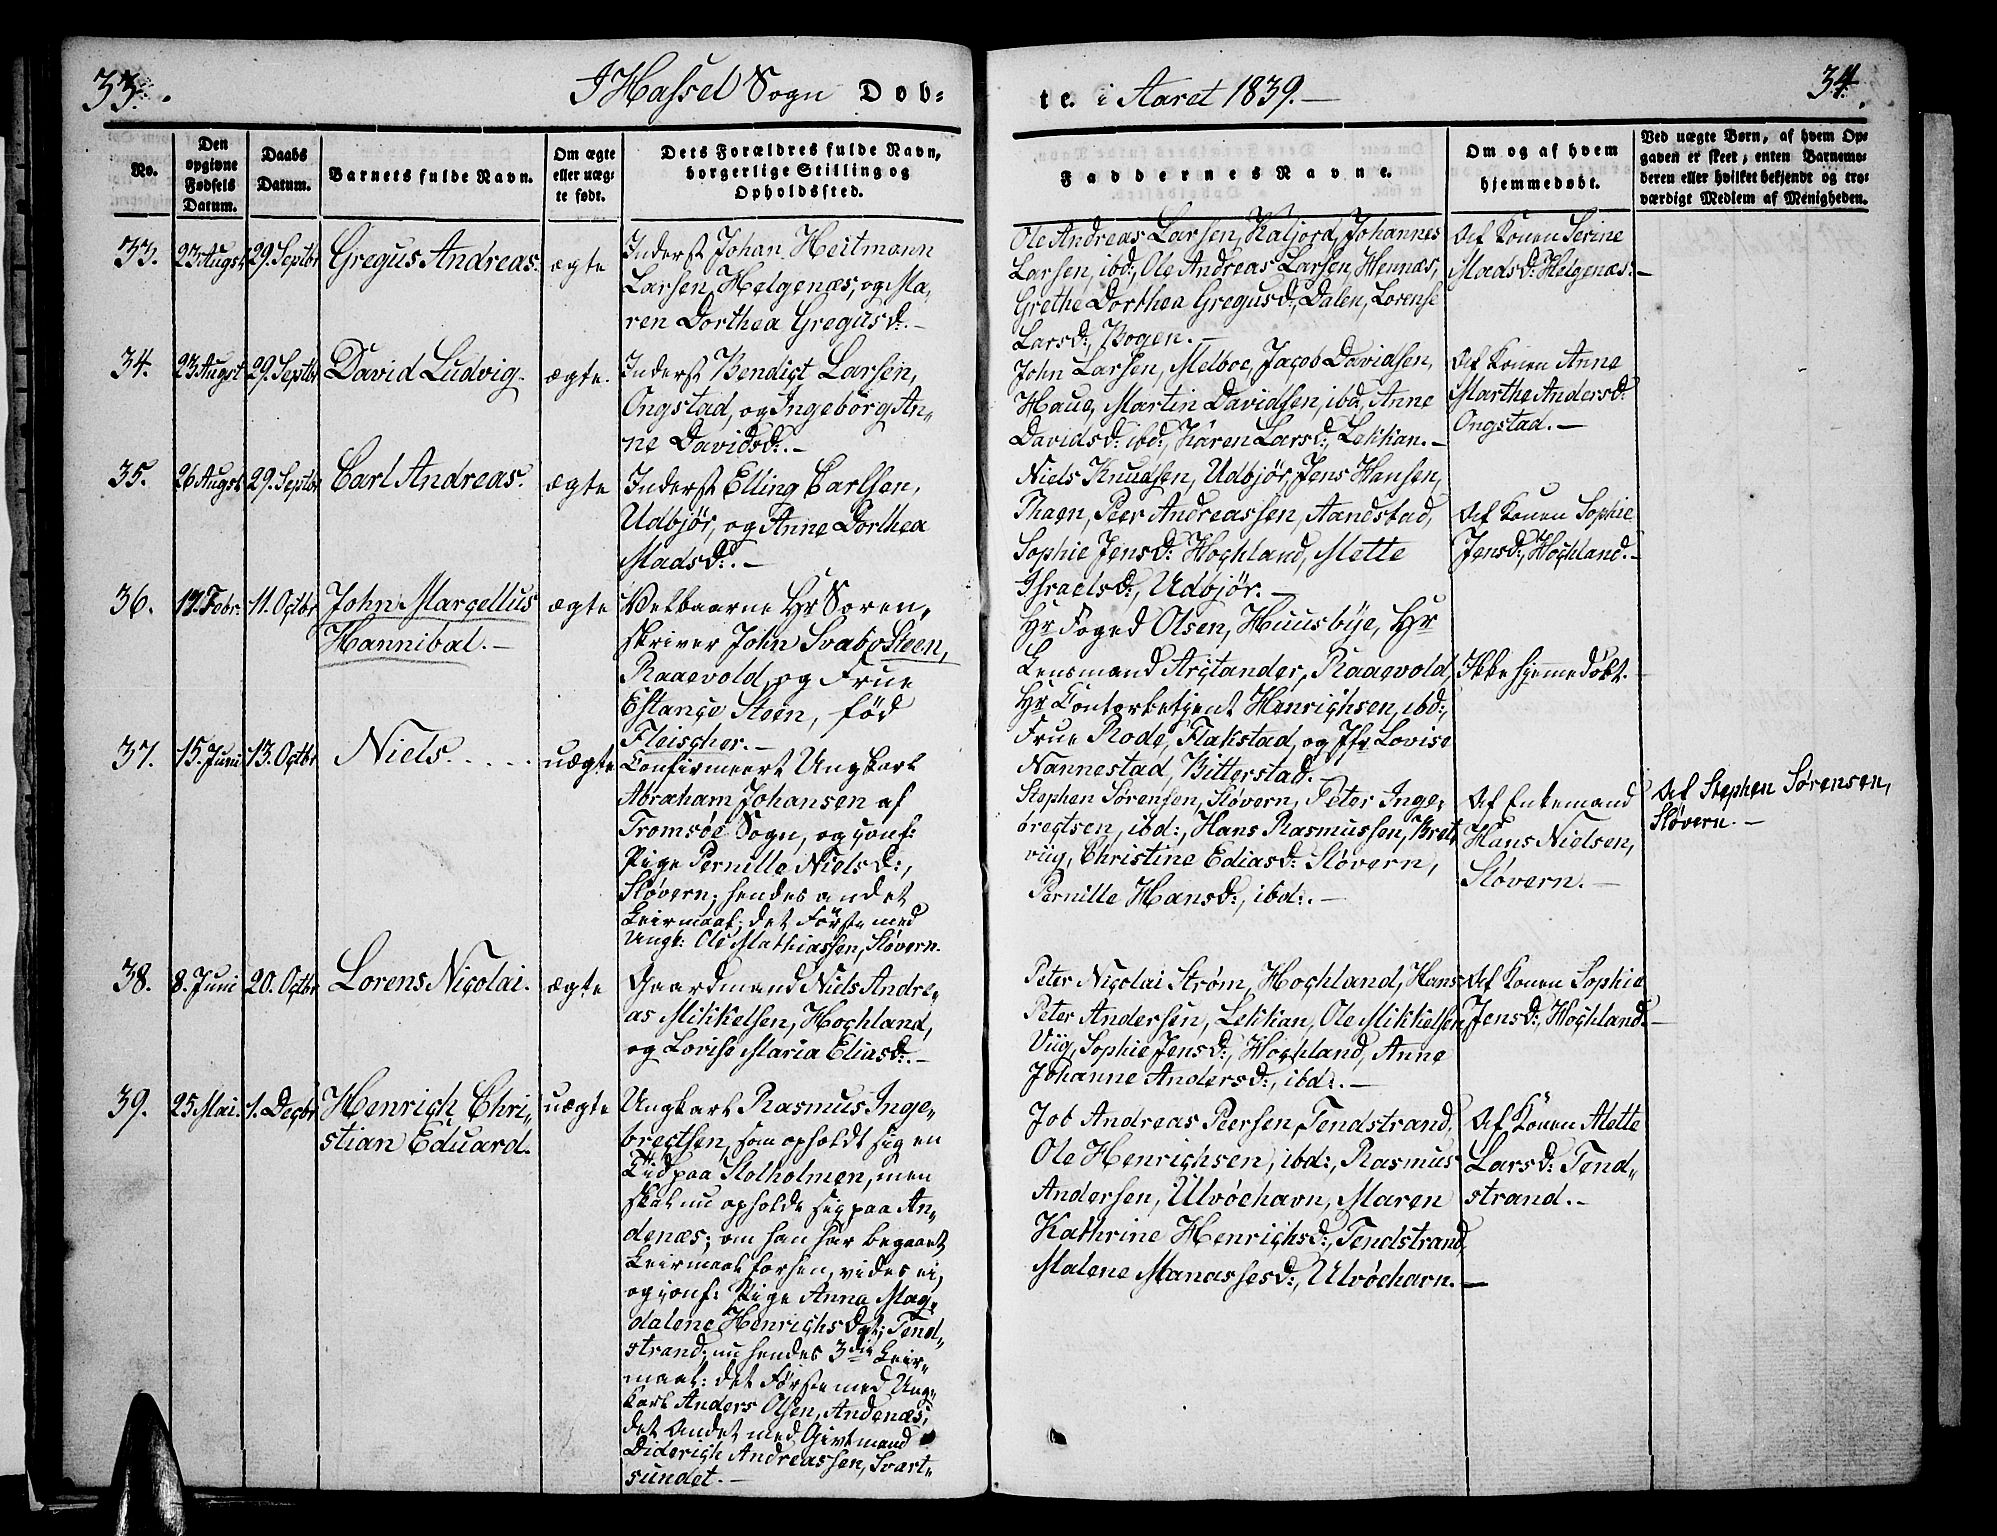 33.
I Hassel Sogn Døb-
te. i Aaret 1839.—
34.
No.
Den
opgivne
Fødsels
Datum.
Daabs
Datum.
Barnets fulde Navn.
Om ægte
eller uæg-
te født.
Dets Forældres fulde Navn,
borgerlige Stilling og
Opholdssted.
Faddernes Navne.
Om og af hvem
hjemmedøbt.
Ved uægte Børn, af hvem Op-
gaven er skeet, enten Barnemo-
deren eller hvilket bekjendt og tro-
værdigt Medlem af Menigheden.
33.
23 Augst
29. Septbr
Gregus Andreas.
ægte
Inderst Johan Heitmann
Larsen, Helgenæs, og Ma,
ren Dorthea Gregusd:.—
Ole Andreas Larsen, Kaljord, Johannes
Larsen, ibd:, Ole Andreas Larsen, Hennæs,
Grethe Dorthea Gregusd:, Dalen, Lorense
Larsd:, Bogen.—
Af Konen Serine
Madsd: Helgenæs.—
34.
23 Augst
29. Septbr
David Ludvig.
ægte.
Inderst Bendigt Larsen,
Ongstad, og Ingeborg An,
ne Davidsd:.—
John Larsen, Melboe, Jacob Davidsen,
Haug, Martin Davidsen, ibd, Anne
Davidsd: ibd:, Karen Larsd:, Lekkan.—
Af Konen Anne
Marthe Andersd:
Ongstad.—
35.
26 Augst
29. Septbr
Carl Andreas.
ægte
Inderst Elling Carlsen,
Udbjør, og Anne Dorthea
Madsd:.—
Niels Knudsen, Udbjør, Jens Hansen,
Phagn, Peer Andreassen, Aandstad,
Sophie Jensd: Hochland, Mette
Israelsd:, Udbjør.—
Af Konen Sophie
Jensd:, Hochland.—
36.
17. Febr.
11. Octbr
John Marcellus
Hannibal.—
ægte
Velbaarne Hr Soren,
skriver John Svabo Steen,
Raaevold, og Frue
Estance Steen, fød
Fleischer.—
Hr Foged Olsen, Huusbye, Hr
Lensmand Arctander, Raaevold,
Hr Contorbetjent Henrichsen, ibd:,
Frue Rode, Flakstad, og Jfr Lovise
Nannestad, Bitterstad.
Ikke hjemmedøbt.—
37.
15. Juni
13. Octbr
Niels. . . . .
uægte
Confirmeert Ungkarl
Abraham Johansen af
Tromsøe Sogn, og conf:
Pige Pernille Nielsd:,
Sløvern; hendes andet
Leiermaal; det Første med
Ungk: Ole Mathiassen, Sløvern.
Stephen Sørensen, Sløvern, Peter Inge,
brectsen, ibd:, Hans Rasmussen, Bret,
viig, Christine Ediasd: Sløvern,
Pernille Hansd:, ibd:.—
Af Enkemand
Hans Nielsen,
Sløvern.—
Af Stephen Sørensen,
Sløvern.—
38.
8. Juni
20. Octbr
Lorens Nicolai.
ægte
Gaardmand Niels Andre,
as Mikkelsen, Hochland,
og Lovise Maria Eliasd:.—
Peter Nicolai Strøm, Hochland, Hans
Peter Andersen, Lekkan, Ole Mikkelsen
Viig, Sophie Jensd:, Hochland, Anne
Johanne Andersd:, ibd:.—
Af Konen Sophie
Jensd:, Hochland.—
39.
25. Mai.
1. Decbr
Henrich Chri,
stian Eduard.
uægte
Ungkarl Rasmus Inge,
brectsen, som opholdt sig en
Tiid paa Stolholmen, men
skal nu opholde sig paa An,
denæs; om han har begaaet
Leiermaal forhen, vides ei,
og conf: Pige Anna Mag,
dalene Henrichsdt; Tend,
strand; nu hendes 3die Leier,
maal: det Første med Ung,
karl Anders Olsen, Andenæs,
det Andet med Givtmand
Diderich Andreassen, Svart,
sundet.—
Job Andreas Peersen, Tendstrand,
Ole Henrichsen, ibd:, Rasmus
Andersen, Ulvøehavn, Maren
Kathrine Henrichsd:, Tendstrand,
Malene Manassesd:, Ulvøehavn.—
Af Konen Alette
Larsd: Tend,
strand.—